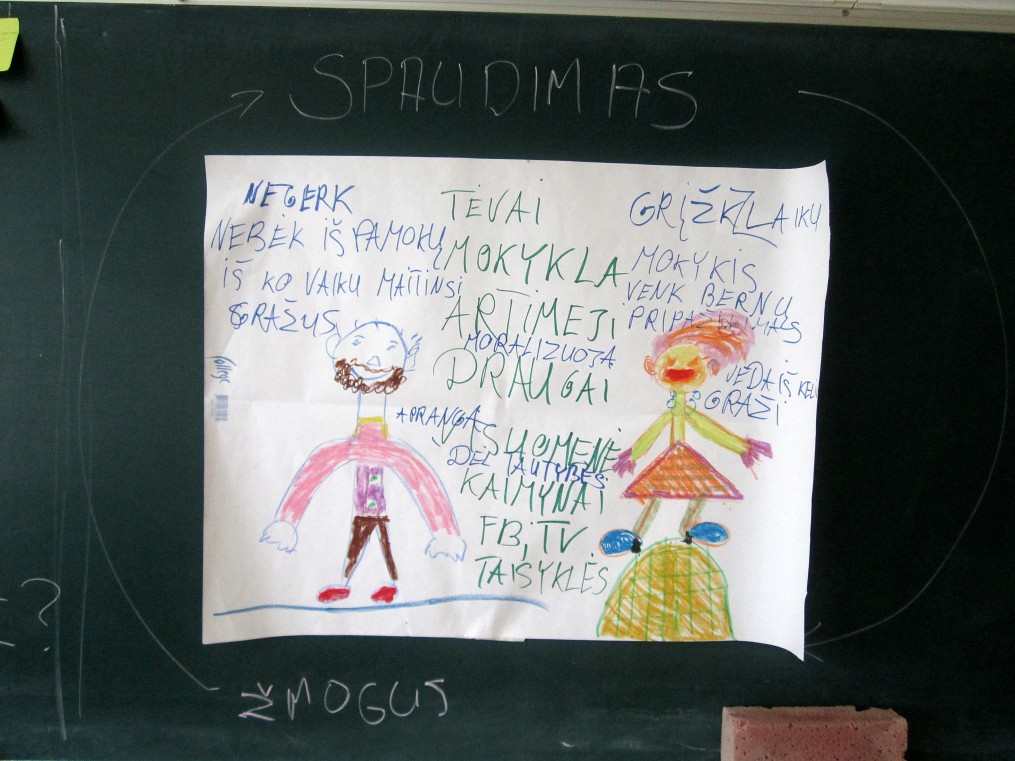 SPAUDIMAS
NEGERK
NEBĖK IŠ PAMOKŲ
IŠ KO VAIKU MAITINSI
GRAŽUS
TĖVAI
MOKYKLA
ARTIMEJI
MORALIZUOJA
DRAUGAI
APRANGA
VISUOMENĖ
DĖL TAUTYBĖS
KAIMYNAI
FB, TV
TAISYKLĖS
GRĮŽK LAIKU
MOKYKIS
VENK BERNŲ
VEDA IŠ
GRAŽI
college
?
ŽMOGUS